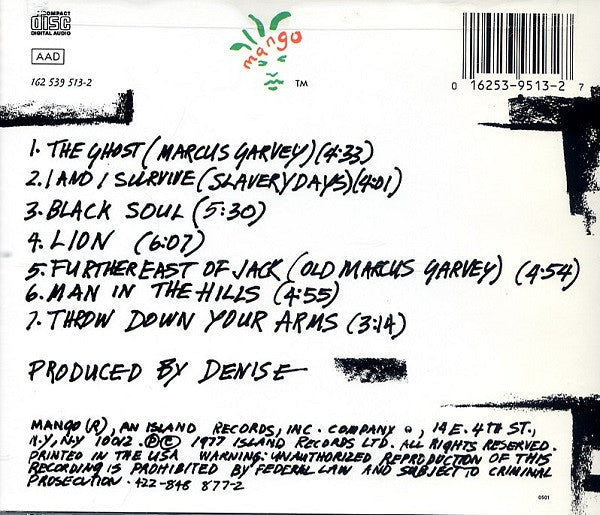 COMPACT
disc
DIGITAL AUDIO
AAD
162 539 513-2
mango
TM
0 16253-9513-2 7
1. THE GHOST (MARCUS GARVEY) (4:33)
2. I AND I SURVIVE (SLAVERY DAYS) (4:01)
3. BLACK SOUL (5:30)
4. LION (6:07)
5. FURTHER EAST OF JACK (OLD MARCUS GARVEY) (4:54)
6. MAN IN THE HILLS (4:55)
7. THROW DOWN YOUR ARMS (3:14)
PRODUCED BY DENISE
MANGO (R), AN ISLAND RECORDS, INC. COMPANY, 14 E. 4TH ST.,
N.Y., N.Y 10012. ℗© 1977 ISLAND RECORDS LTD. ALL RIGHTS RESERVED.
PRINTED IN THE USA WARNING: UNAUTHORIZED REPRODUCTION OF THIS
RECORDING IS PROHIBITED BY FEDERAL LAW AND SUBJECT TO CRIMINAL
PROSECUTION. 422-848 877-2
0501